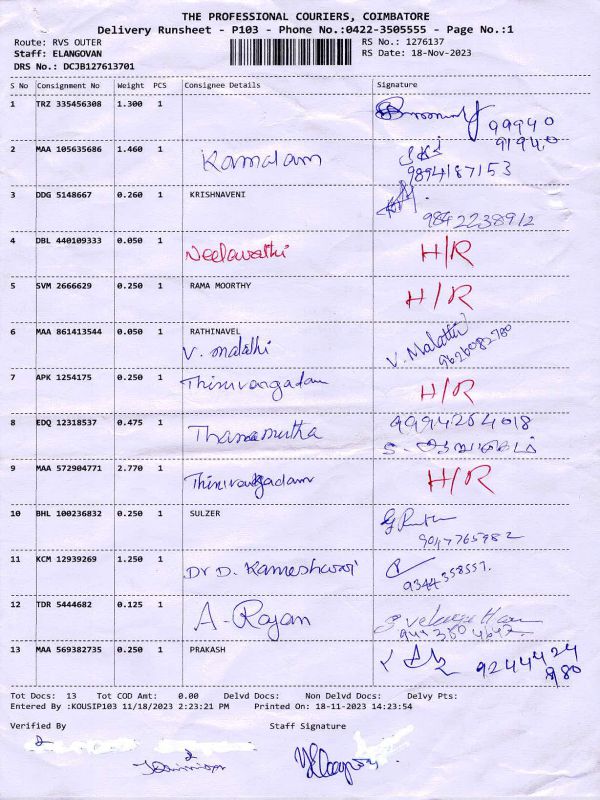 THE PROFESSIONAL COURIERS, COIMBATORE
Delivery Runsheet - P103 - Phone No.:0422-3505555 - Page No.:1
Route: RVS OUTER RS No.: 1276137
Staff: ELANGOVAN RS Date: 18-Nov-2023
DRS No.: DCJB127613701
S No Consignment No Weight PCS Consignee Details Signature
1 TRZ 335456308 1.300 1
99940
2 MAA 105635686 1.460 1 Kamalam
9894187153
3 DDG 5148667 0.260 1 KRISHNAVENI
9842238912
4 DBL 440109333 0.050 1 Neelavathi H/R
5 SVM 2666629 0.250 1 RAMA MOORTHY H/R
6 MAA 861413544 0.050 1 RATHINAVEL
V. malathi V. Malathi
9626082780
7 APK 1254175 0.250 1 Thiruvangadam H/R
8 EDQ 12318537 0.475 1 99994254018
9 MAA 572904771 2.770 1 H/R
10 BHL 100236832 0.250 1 SULZER
11 KCM 12939269 1.250 1 Dr D. Kameshwari
12 TDR 5444682 0.125 1 A. Rajan
13 MAA 569382735 0.250 1 PRAKASH
9244424
980
Tot Docs: 13 Tot COD Amt: 0.00 Delvd Docs: Non Delvd Docs: Delvy Pts:
Entered By :KOUSIP103 11/18/2023 2:23:21 PM Printed On: 18-11-2023 14:23:54
Verified By Staff Signature